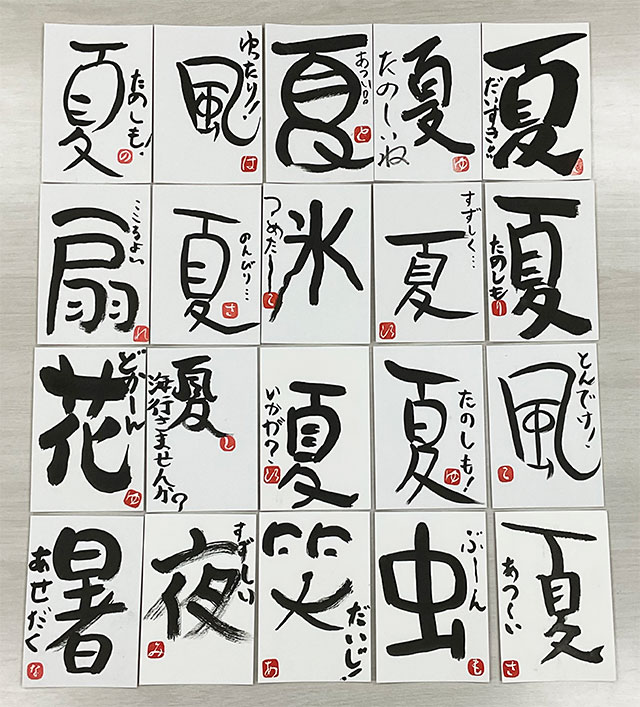 夏
たのしも!
の
風
ゆったり!
は
夏
あつい!!
と
夏
たのしいね
ゆ
夏
だいすき!!
扇
こころよい
れ
夏
のんびり…
さ
氷
つめたーい
て
夏
すずしく…
夏
たのしもり
花
どかーん
ゆ
夏
海行きませんか?
し
夏
いかが?
夏
たのしも!
ゆ
風
とんでけ!
て
暑
あせだく
な
夜
すずしい
み
笑
だいじ!
あ
虫
ぶーん
も
夏
あつーい
さ